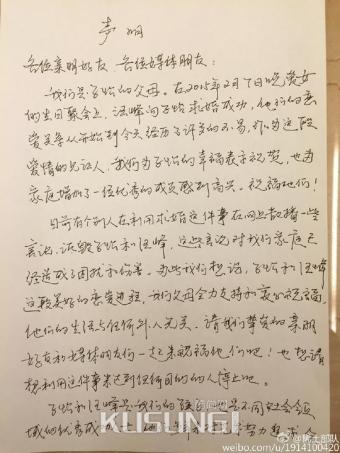 声明
各位亲朋好友、各位媒体朋友：
我们是子怡的父母。在2015年2月7日晚爱女
的生日聚会上，汪峰向子怡求婚成功，他们的恋
爱关系从开始到今天经历了许多的不易，作为这段
爱情的见证人，我们为子怡的幸福表示祝贺，也为
家庭增加了一位优秀的成员感到高兴。祝福他们！
日前有个别人在利用求婚这件事在网上散播一些
言论，诋毁子怡和汪峰，这些言论对我们家庭已
经造成了困扰和伤害。为此我们想说，子怡和汪峰
这段美好的恋爱进程，我们父母全力支持和衷心祝福，
他们的生活与任何外人无关。请我们挚爱的亲朋
好友和媒体朋友们一起来祝福他们吧！也想请
想利用这件事来达到任何目的的人停止吧。
子怡和汪峰是我们的 不同社会领
域 优秀 努力
KUSUNGI
@稀土部队
weibo.com/u/1914100420